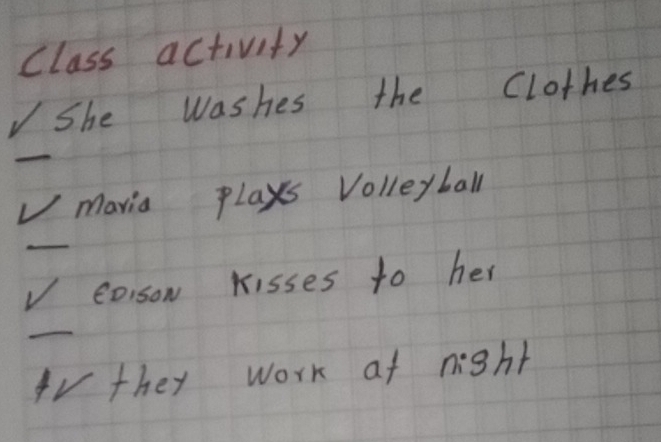 Class activity
✓ She washes the Clothes
✓ maria plays Volleyball
✓ EDISON kisses to her
✓ they work at night